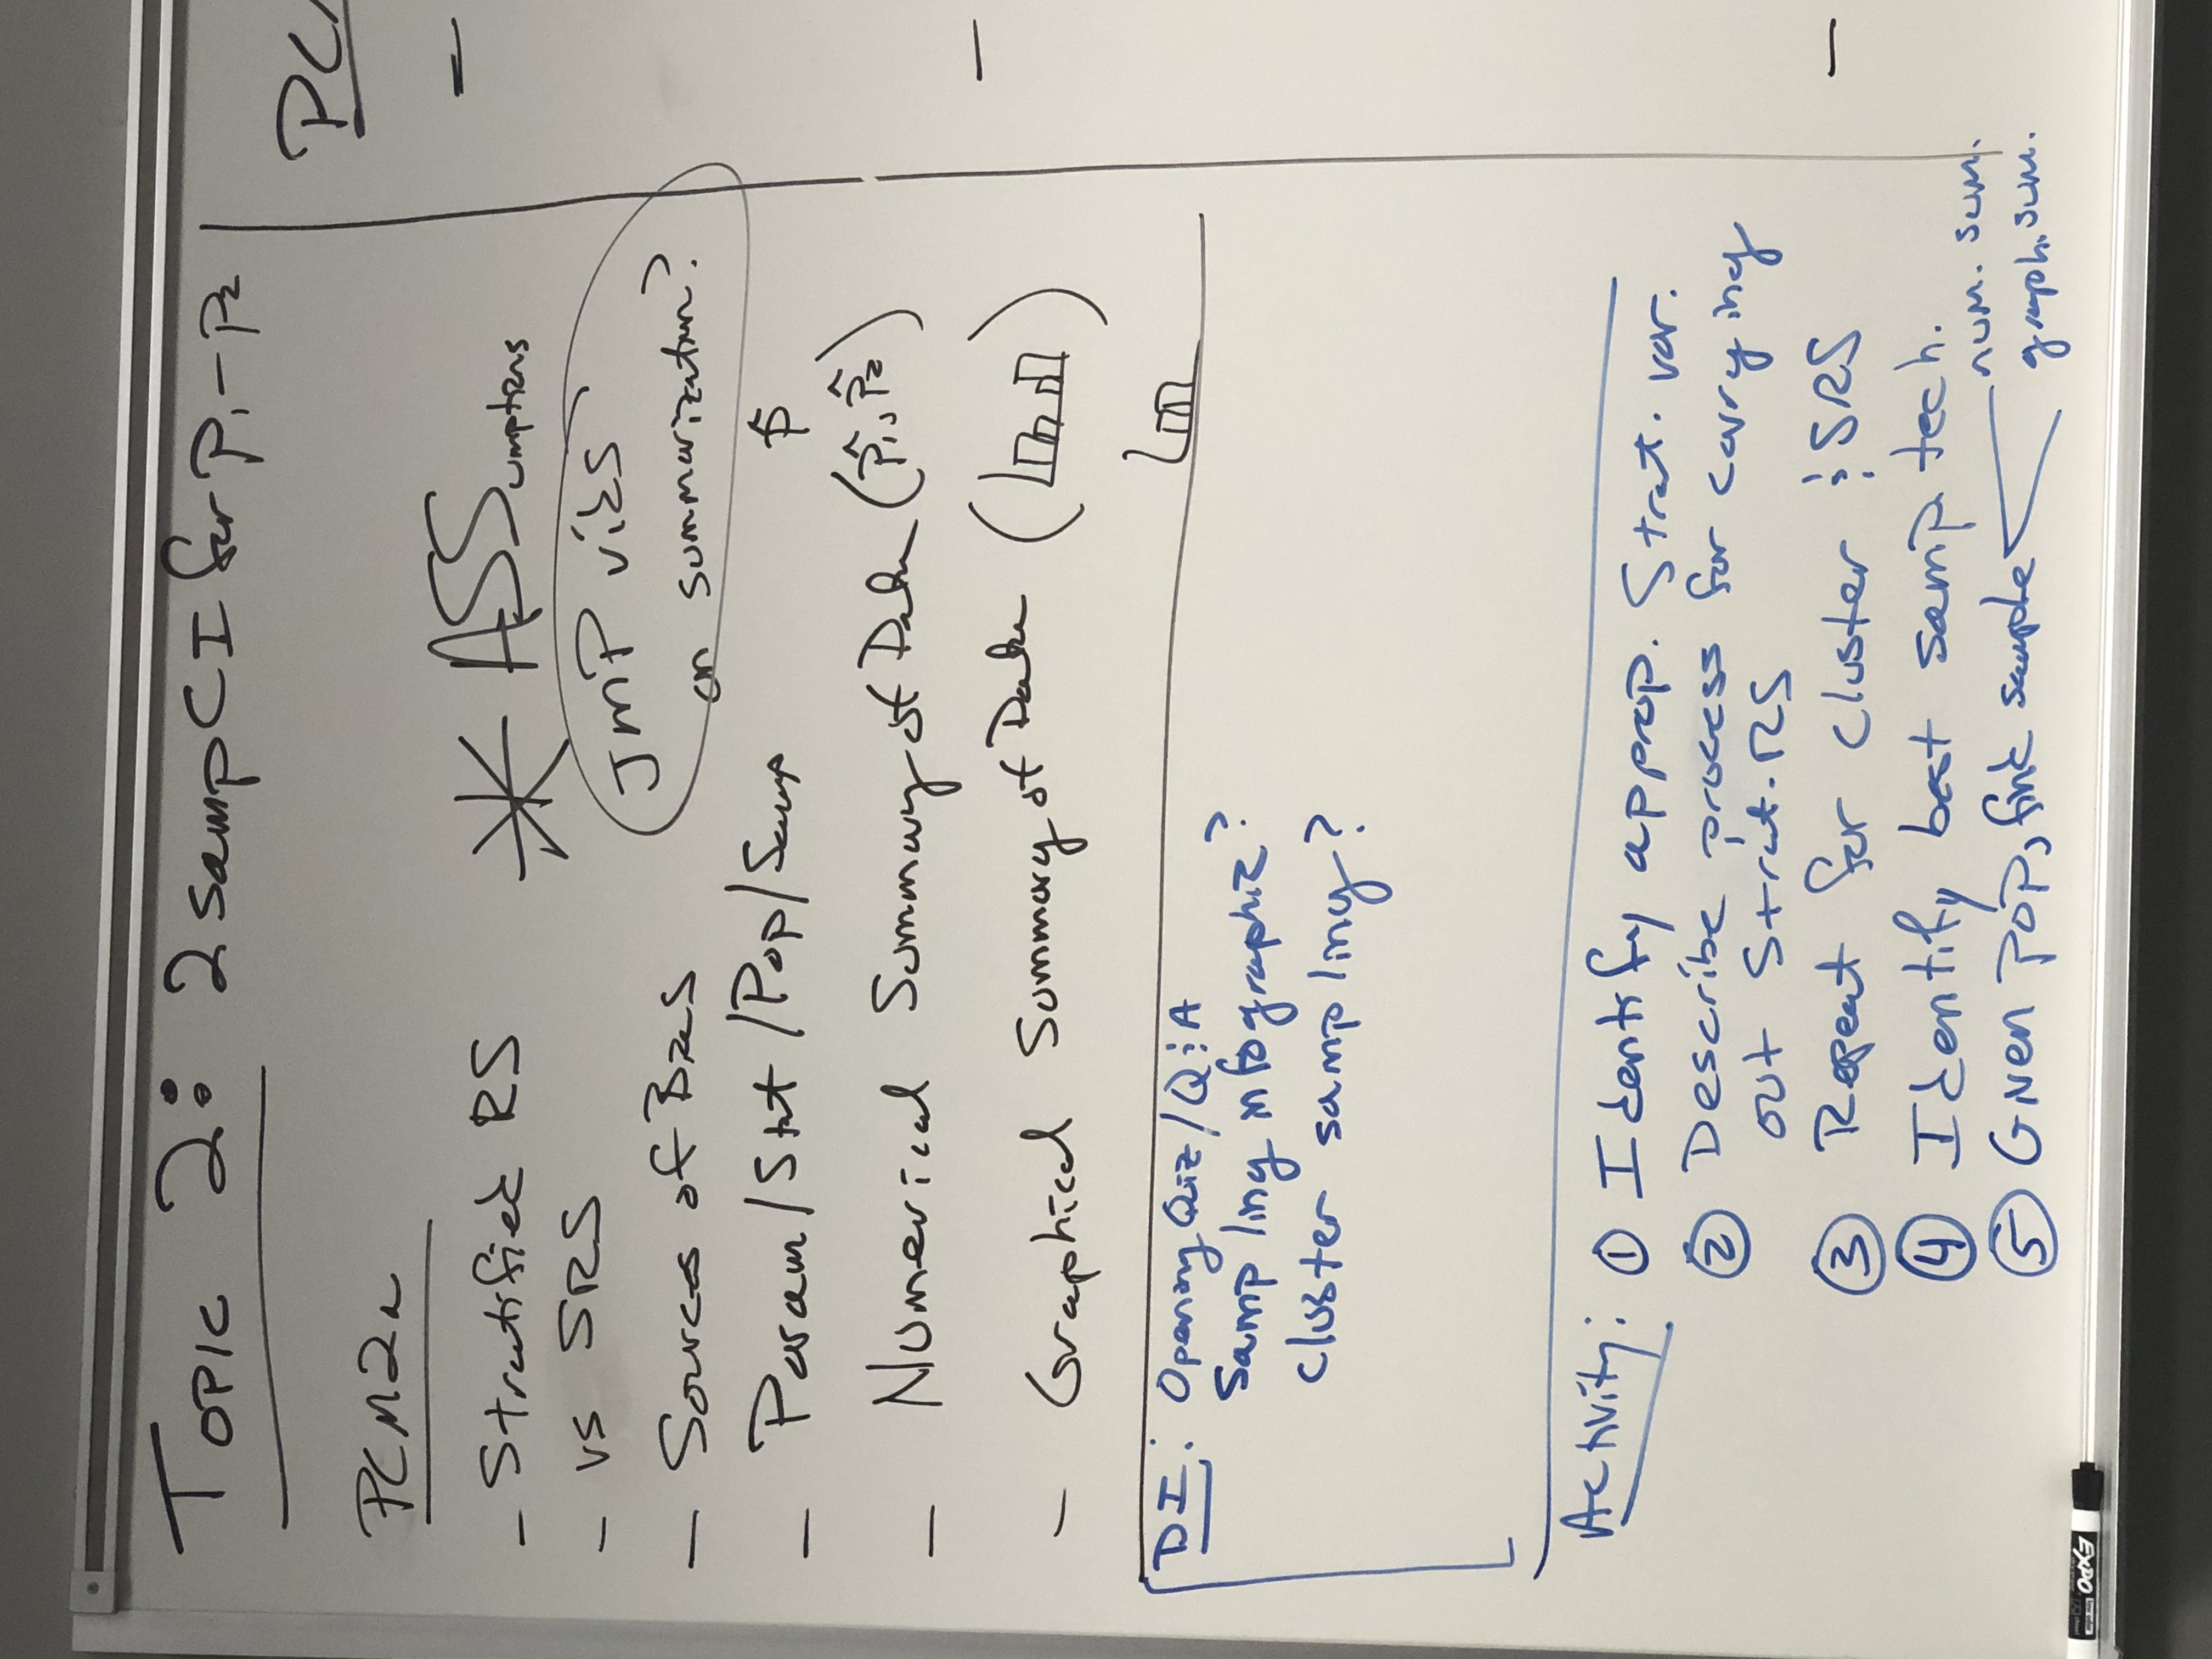 Topic 2: 2 samp CI for p₁ - p₂
PCM2a
- Stratified RS
- vs SRS
- Sources of Bias
- Param/Stat/Pop/Samp
- Numerical Summary of Data (p̂₁, p̂₂)
- Graphical Summary of Data ( )
* ASSumptions
JMP vids
on summarization?
p̂
DI: Opening Quiz/Q & A
Sampling infographic?
Cluster sampling?
Activity: ① Identify approp. Strat. var.
② Describe process for carrying
out Strat. RS
③ Repeat for cluster & SRS
④ Identify best samp. tech.
⑤ Given pop, find sample
num. sum.
graph. sum.
EXPO